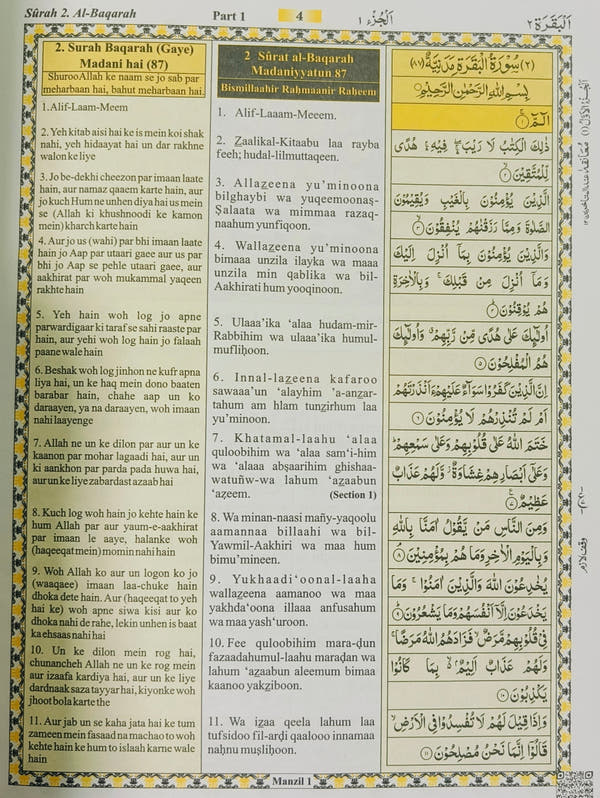 Sûrah 2. Al-Baqarah
Part 1
4
اَلْجُزْء ١
اَلْبَقَرَة ٢
2. Surah Baqarah (Gaye)
Madani hai (87)
ShurooAllah ke naam se jo sab par
meharbaan hai, bahut meharbaan hai.
1.Alif-Laam-Meem
2. Yeh kitab aisi hai ke is mein koi shak
nahi, yeh hidaayat hai un dar rakhne
walon ke liye
3. Jo be-dekhi cheezon par imaan laate
hain, aur namaz qaaem karte hain, aur
jo kuch Hum ne unhen diya hai us mein
se (Allah ki khushnoodi ke kamon
mein) kharch karte hain
4. Aur jo us (wahi) par bhi imaan laate
hain jo Aap par utaari gaee aur us par
bhi jo Aap se pehle utaari gaee, aur
aakhirat par woh mukammal yaqeen
rakhte hain
5. Yeh hain woh log jo apne
parwardigaar ki taraf se sahi raaste par
hain, aur yehi woh log hain jo falaah
paane wale hain
6. Beshak woh log jinhon ne kufr apna
liya hai, un ke haq mein dono baaten
barabar hain, chahe aap un ko
daraayen, ya na daraayen, woh imaan
nahi laayenge
7. Allah ne un ke dilon par aur un ke
kaanon par mohar lagaadi hai, aur un
ki aankhon par parda pada huwa hai,
aur un ke liye zabardast azaab hai
8. Kuch log woh hain jo kehte hain ke
hum Allah par aur yaum-e-aakhirat
par imaan le aaye, halanke woh
(haqeeqat mein) momin nahi hain
9. Woh Allah ko aur un logon ko jo
(waaqaee) imaan laa-chuke hain
dhoka dete hain. Aur (haqeeqat to yeh
hai ke) woh apne siwa kisi aur ko
dhoka nahi de rahe, lekin unhen is baat
ka ehsaas nahi hai
10. Un ke dilon mein rog hai,
chunancheh Allah ne un ke rog mein
aur izaafa kardiya hai, aur un ke liye
dardnaak saza tayyar hai, kiyonke woh
jhoot bola karte the
11. Aur jab un se kaha jata hai ke tum
zameen mein fasaad na machao to woh
kehte hain ke hum to islaah karne wale
hain
2 Sûrat al-Baqarah
Madaniyyatun 87
Bismillaahir Raḥmaanir Raheem
1. Alif-Laaam-Meem.
2. Z̲aalikal-Kitaabu laa rayba
feeh; hudal-lilmuttaqeen.
3. Allaz̲eena yu’minoona
bilghaybi wa yuqeemoonaṣ-
Ṣalaata wa mimmaa razaq-
naahum yunfiqoon.
4. Wallaz̲eena yu’minoona
bimaaa unzila ilayka wa maaa
unzila min qablika wa bil-
Aakhirati hum yooqinoon.
5. Ulaaa’ika ‘alaa hudam-mir-
Rabbihim wa ulaaa’ika humul-
mufliḥoon.
6. Innal-laz̲eena kafaroo
sawaaa’un ‘alayhim ’a-anz̲ar-
tahum am hlam tunz̲irhum laa
yu’minoon.
7. Khatamal-laahu ‘alaa
quloobihim wa ‘alaa sam‘i-him
wa ‘alaaa abṣaarihim ghishaa-
watuñw-wa lahum ‘az̲aabun
‘aẓeem.
(Section 1)
8. Wa minan-naasi mañy-yaqoolu
aamannaa billaahi wa bil-
Yawmil-Aakhiri wa maa hum
bimu’mineen.
9. Yukhaadi‘oonal-laaha
wallaz̲eena aamanoo wa maa
yakhda‘oona illaaa anfusahum
wa maa yash‘uroon.
10. Fee quloobihim mara-ḍun
fazaadahumul-laahu maraḍan wa
lahum ‘az̲aabun aleemum bimaa
kaanoo yakz̲iboon.
11. Wa iz̲aa qeela lahum laa
tufsidoo fil-arḍi qaalooo innamaa
naḥnu muṣliḥoon.
(٢) سُوْرَةُ الْبَقَرَةِ مَدَنِيَّةٌ (٨٧)
بِسْمِ اللهِ الرَّحْمٰنِ الرَّحِيْمِ
الٓمّٓ ۝١
ذٰلِكَ الْكِتٰبُ لَا رَيْبَ ۛ فِيْهِ ۛ هُدًى
لِّلْمُتَّقِيْنَ ۝٢
الَّذِيْنَ يُؤْمِنُوْنَ بِالْغَيْبِ وَيُقِيْمُوْنَ
الصَّلٰوةَ وَمِمَّا رَزَقْنٰهُمْ يُنْفِقُوْنَ ۝٣
وَالَّذِيْنَ يُؤْمِنُوْنَ بِمَآ اُنْزِلَ اِلَيْكَ
وَمَآ اُنْزِلَ مِنْ قَبْلِكَ ۚ وَبِالْاٰخِرَةِ
هُمْ يُوْقِنُوْنَ ۝٤
اُولٰٓئِكَ عَلٰى هُدًى مِّنْ رَّبِّهِمْ ۙ وَاُولٰٓئِكَ
هُمُ الْمُفْلِحُوْنَ ۝٥
اِنَّ الَّذِيْنَ كَفَرُوْا سَوَآءٌ عَلَيْهِمْ ءَاَنْذَرْتَهُمْ
اَمْ لَمْ تُنْذِرْهُمْ لَا يُؤْمِنُوْنَ ۝٦
خَتَمَ اللهُ عَلٰى قُلُوْبِهِمْ وَعَلٰى سَمْعِهِمْ ؕ
وَعَلٰٓى اَبْصَارِهِمْ غِشَاوَةٌ ؗ وَّلَهُمْ عَذَابٌ
عَظِيْمٌ ۝٧
وَمِنَ النَّاسِ مَنْ يَّقُوْلُ اٰمَنَّا بِاللهِ
وَبِالْيَوْمِ الْاٰخِرِ وَمَا هُمْ بِمُؤْمِنِيْنَ ۘ ۝٨
يُخٰدِعُوْنَ اللهَ وَالَّذِيْنَ اٰمَنُوْا ۚ وَمَا
يَخْدَعُوْنَ اِلَّآ اَنْفُسَهُمْ وَمَا يَشْعُرُوْنَ ؕ ۝٩
فِيْ قُلُوْبِهِمْ مَّرَضٌ ۙ فَزَادَهُمُ اللهُ مَرَضًا ۚ
وَلَهُمْ عَذَابٌ اَلِيْمٌۢ ۙ بِمَا كَانُوْا
يَكْذِبُوْنَ ۝١٠
وَاِذَا قِيْلَ لَهُمْ لَا تُفْسِدُوْا فِي الْاَرْضِ ۙ
قَالُوْٓا اِنَّمَا نَحْنُ مُصْلِحُوْنَ ۝١١
وقف لازم
Manzil 1